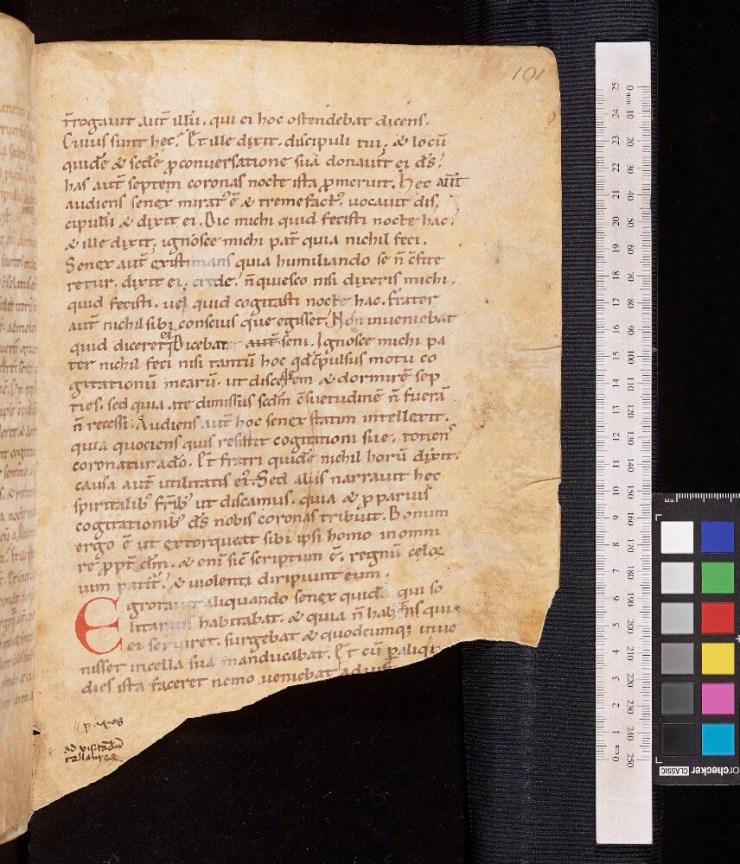 101
Īrogauit aut̄ illū. qui ei hoc ostendebat dicens.
Cuius sunt hec? Et ille dixit. discipuli tui. & locū
quidē & sedē p conuersatione sua donauit ei ds̄.
has aut̄ septem coronas nocte ista pmeruit. Hec aut̄
audiens senex mirat᷒ ē & tremefact᷒. uocauit dis
cipulū & dixit ei. Dic michi quid fecisti nocte hac.
& ille dixit. ignosce michi pat̄ quia nichil feci.
Senex aut̄ existimans quia humiliando se n̄ c̄fite
retur. dixit ei. crede. n̄ quiesco nisi dixeris michi.
quid fecisti. uel quid cogitasti nocte hac. Frater
aut̄ nichil sibi conscius que egisset. Non inueniebat
quid diceret. Dicebat aut̄ seni. Ignosce michi pa
ter nichil feci nisi tantū hoc qd cpulsus motu co
gitationū mearū. ut discedem & dormirē sep
ties. sed quia a te dimissus scdm c̄suetudinē n̄ fuerā
n̄ recessi. Audiens aut̄ hoc senex statim intellexit.
quia quociens quis resistit cogitationi sue. totiens
coronatur a dō. Et fratri quidē nichil horū dixit.
causa aut̄ utilitatis ei᷒. Sed aliis narrauit hec
spiritalib᷒ frīb᷒ ut discamus. quia & p paruis
cogitationib᷒ ds̄ nobis coronas tribuit. Bonum
ergo ē ut extorqueat sibi ipsi homo in omni
re ppt̄ dm̄. & eni sic̄ scriptum ē. regnū celoꝝ
uim patit᷒. & uiolenti diripiunt eum.
Egrotauit aliquando senex quidā qui so
litarius habitabat. & quia n̄ habens qui
ei seruiret. surgebat & quodcumq; inue
nisset in cella sua manducabat. Et cū p aliq
dies ista faceret nemo ueniebat ad
ad visitadū